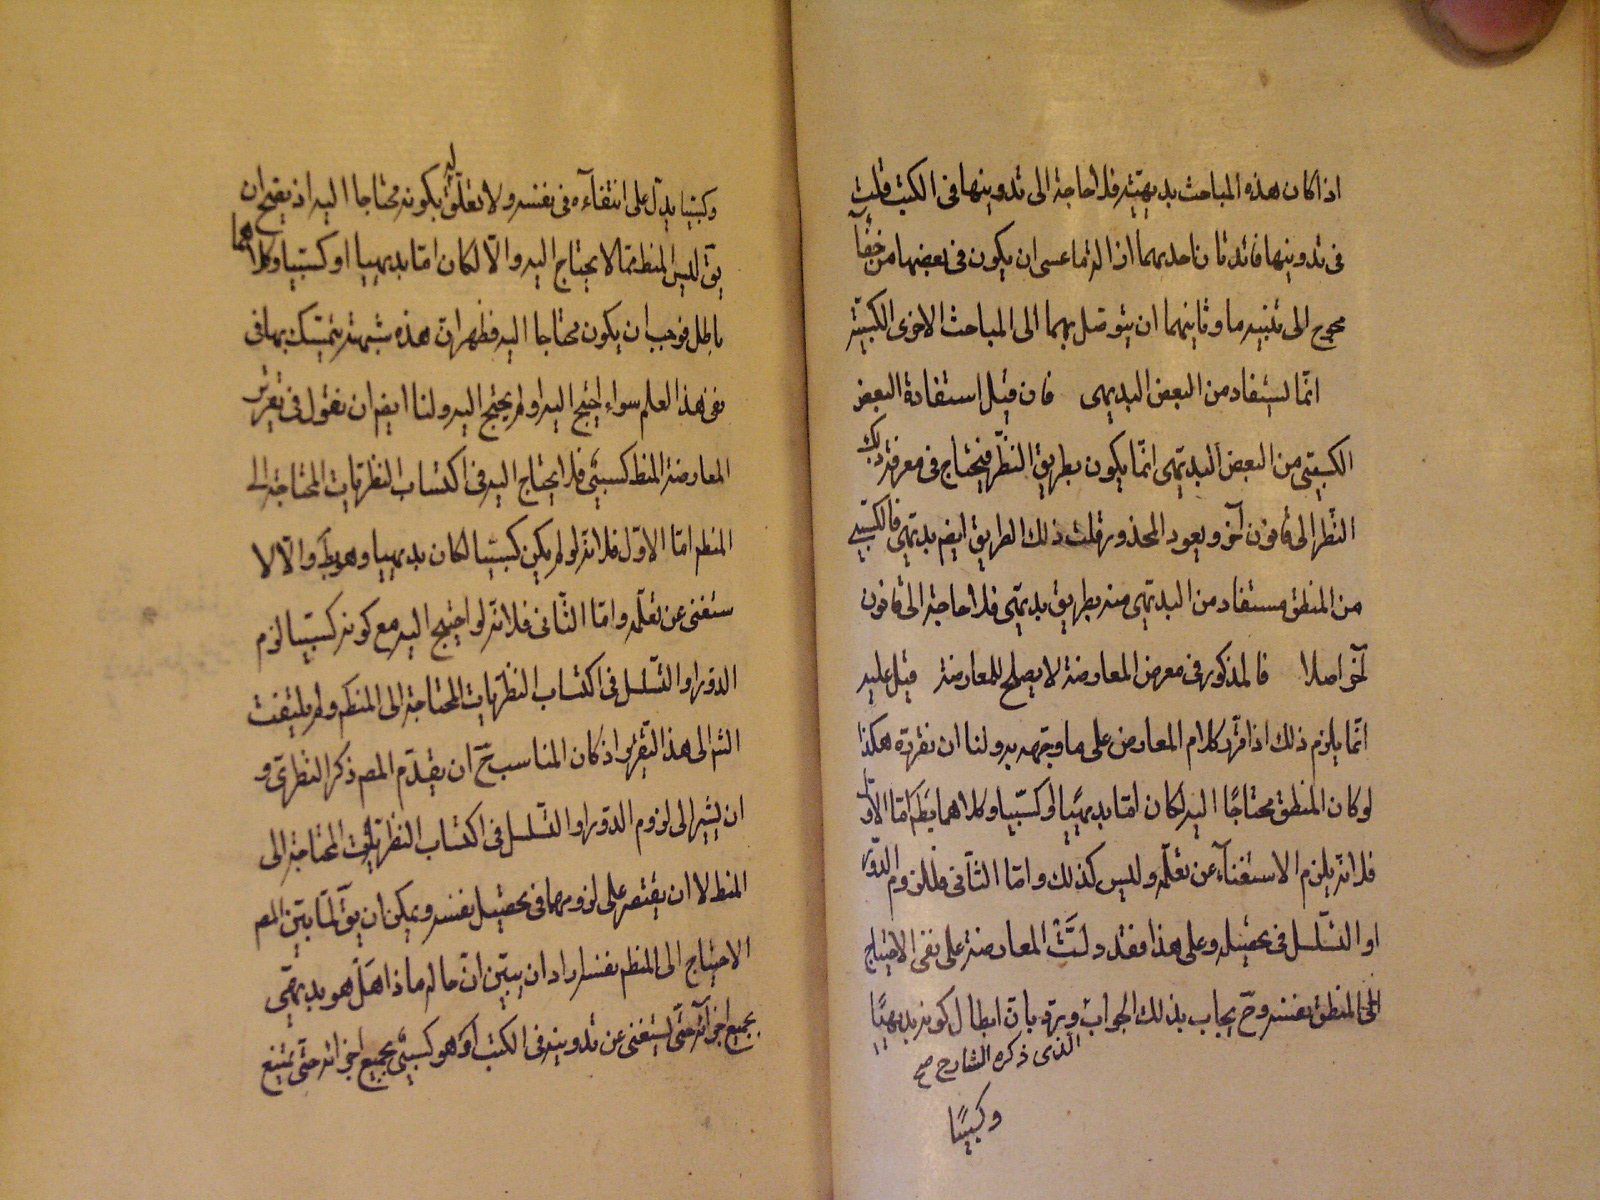 اذا كان هذه المباحث بديهيّة فلا حاجة الى تدوينها فى الكتب قلت
فى تدوينها فائدتان احديهما ازالة ما عسى ان يكون فى بعضها من خفآء
محوج الى تنبيه ما وثانيهما ان يتوصّل بهما الى المباحث الاخرى الكسبيّة
انّما يستفاد من البعض البديهى فان قيل استفادة البعض
الكسبىّ من البعض البديهىّ انّما يكون بطريق النّظر فيحتاج فى معرفة ذلك
النّظر الى قانون آخر ويعود المحذور قلت ذلك الطريق ايضم بديهىّ فالكسبىّ
من المنطق مستفاد من البديهى منه بطريق بديهىّ فلا حاجة الى قانون
آخر اصلا فالمذكور فى معرض المعارضة لا يصلح للمعارضة قيل عليه
انّما يلزم ذلك اذا قرّر كلام المعارض على ما وجّهه به ولنا ان نقرّره هكذا
لو كان المنطق محتاجًا اليه لكان امّا بديهيًا او كسبيّا وكلاهما بط امّا الاوّل
فلانّه يلزم الاستغنآء عن تعلّمه وليس كذلك وامّا الثّانى فللزوم الدّور
او التّسلسل فى تحصيله وعلى هذا فقد دلّتْ المعارضة على نفى الاحتياج
الى المنطق نفسه وحّ يجاب بذلك الجواب ويردّ بانّ ابطال كونه بديهيًا
الذى ذكره الشارح صح
وكسبيًا
وكسبيّا يدلّ على انتفآءه فى نفسه ولا تعلّق له بكونه محتاجا اليه اذ يصحّ ان
يقّ ليس المنط ممّا لا يحتاج اليه والّا لكان امّا بديهيا او كسبيا وكلاهما
باطل فوجب ان يكون محتاجا اليه فظهر انّ هذه شبهة يتمسّك بها فى
نفى هذا العلم سواء احتيج اليه او لم يحتج اليه ولنا ايضم ان نقول فى تقرير
المعارضة المنط كسبىّ فلا يحتاج اليه فى اكتساب النظريّات المحتاجة الى
المنط امّا الاوّل فلانّه لو لم يكن كسبيّا لكان بديهيا وهو بطّ والّا لا
ستغنى عن تعلّمه وامّا الثّانى فلانّه لو احتيج اليه مع كونه كسبيّا لزم
الدّور او التّسلسل فى اكتساب النظريّات المحتاجة الى المنط ولم يلتفت
الشم الى هذا التّقرير اذ كان المناسب حّ ان يقدّم المصم ذكر النظرىّ و
ان يشير الى لزوم الدّور او التّسلسل فى اكتساب النظريّات المحتاجة الى
المنط لا ان يقتصر على لزومهما فى تحصيل نفسه ويمكن ان يقّ لمّا بيّن المصم
الاحتياج الى المنط نفسه اراد ان يبيّن انّ حاله ماذا هَلْ هو بديهىّ
بجميع اجزآئه حتّى يستغنى عن تدوينه فى الكتب او هو كسبىّ بجميع اجزائه حتّى يمتنع